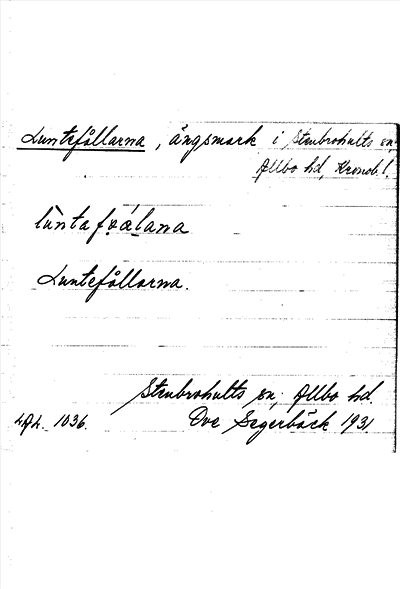 Luntefållarna, ängsmark i Stenbrohults sn,
Allbo hd, Kronob. l.
lùntafǫálana
Luntefållarna.
Stenbrohults sn, Allbo hd.
LAL. 1036. Ove Segerbäck 1931